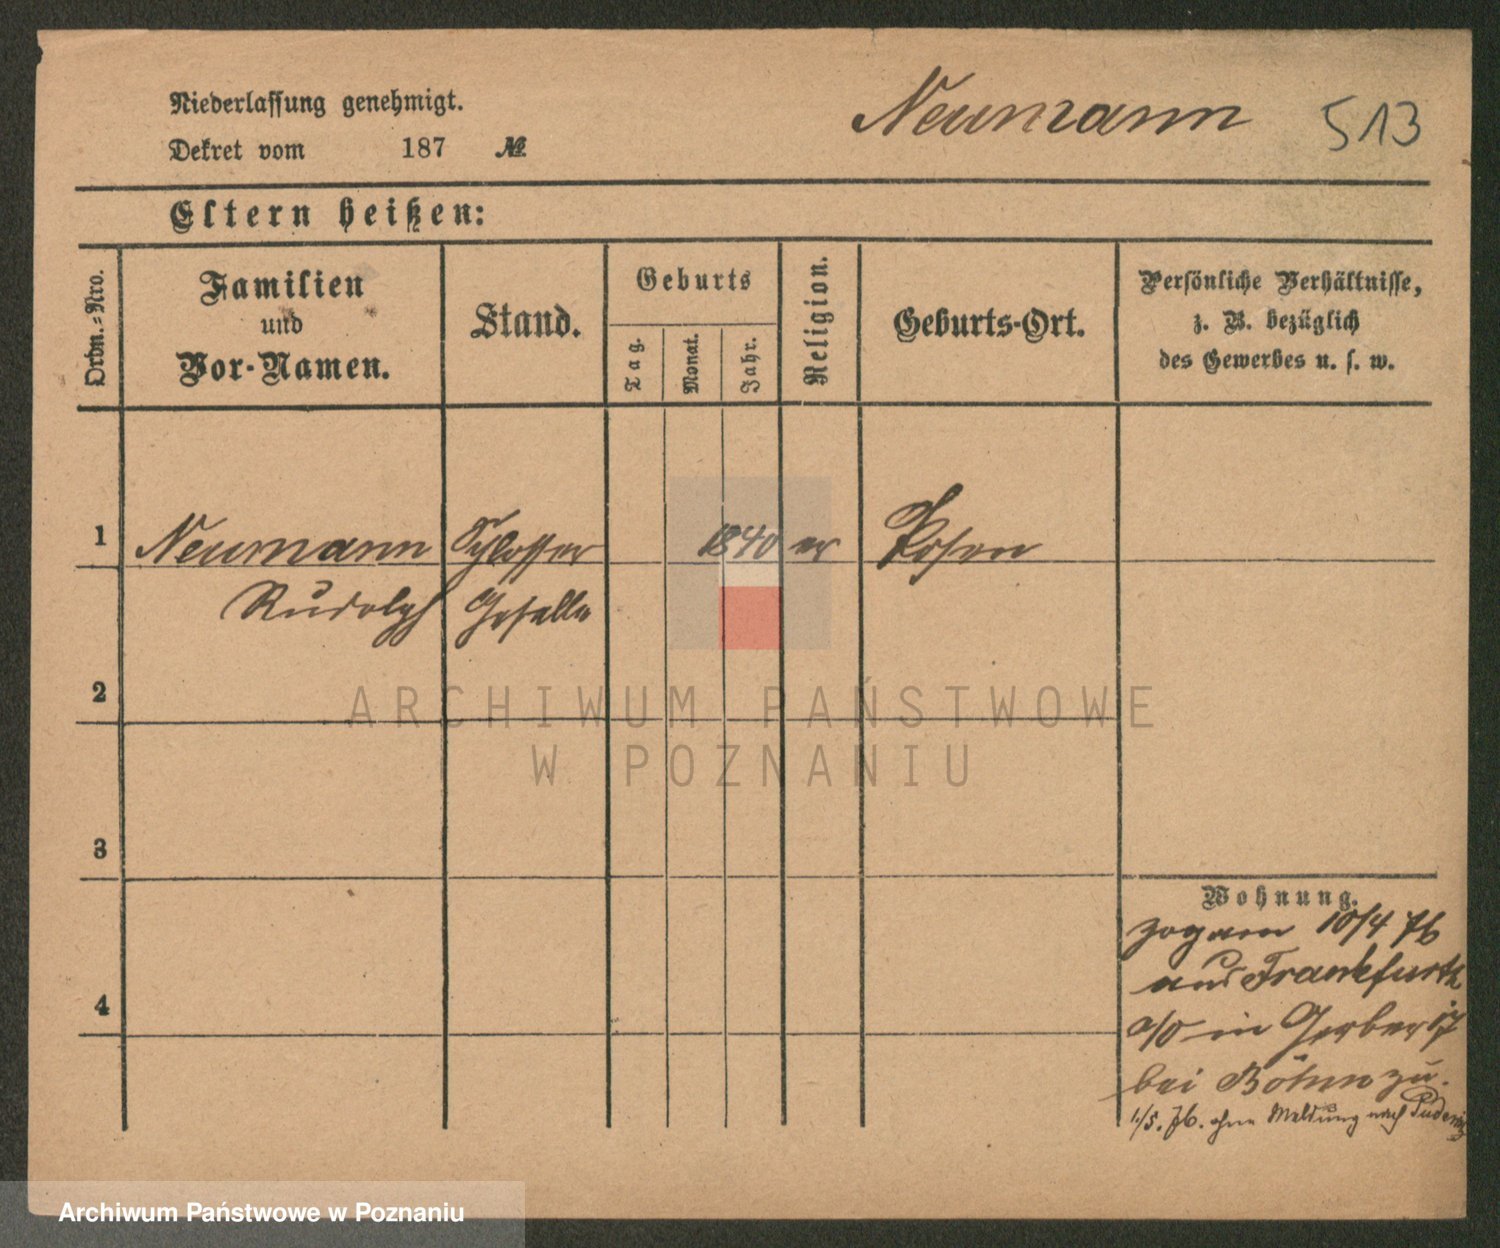 Niederlassung genehmigt.
Neumann 513
Dekret vom 187 №
Eltern heißen:
Ordn.-Nro.
Familien
und
Vor-Namen.
Stand.
Geburts
Tag.
Monat.
Jahr.
Religion.
Geburts-Ort.
Persönliche Verhältnisse,
z. B. bezüglich
des Gewerbes u. s. w.
1 Neumann Schlosser 1840 Posen
Rudolph Geselle
2
3
4
Wohnung.
zog am 10/4 76
aus Frankfurth
a/O in Gerber 17
bei Böhm zu.
1/5. 76. ohne Meldung nach
ARCHIWUM PAŃSTWOWE
W POZNANIU
Archiwum Państwowe w Poznaniu